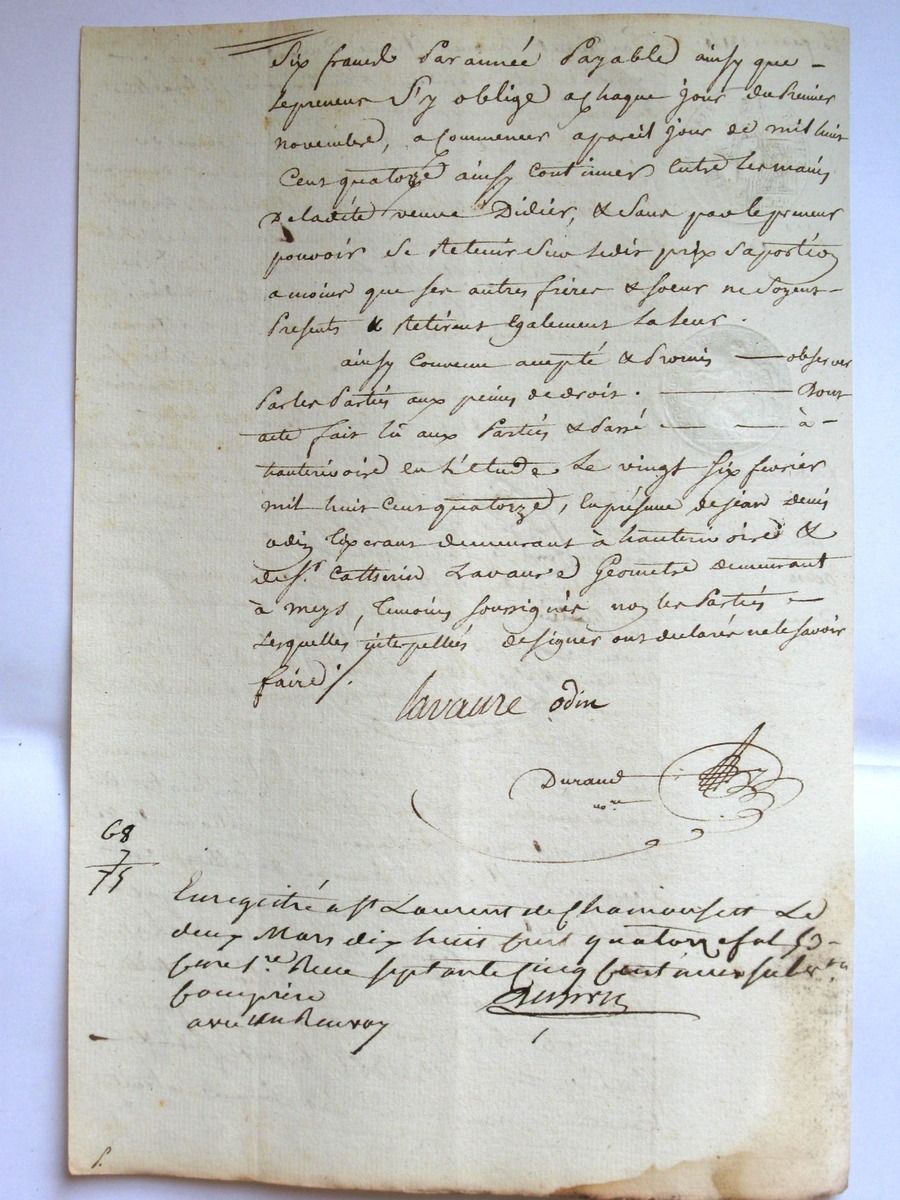 six francs Par année Payable ainsy que -
Lepreneur S'y oblige a chaque jour du Premier
novembre, a Commencer a pareil jour de mil huit
Cent quatorze ainsy Continuer Entre les mains
De ladite veuve Didier, & Sans par le preneur
pouvoir Se Retenir Sur ledit prix Sa portion
a moins que Ses autres frères & Soeur ne Soyent
Presents & Retirent Egalement La leur.
ainsy Convenu accepté & Promis — observer
Par les Parties aux peines de droit. — Dont
acte fait lû aux Parties & Passé — — à -
hauterivoire en L'Etude Le vingt Six fevrier
mil huit Cent quatorze, En présence de jean denis
odin demeurant à hauterivoire &
de Sr. Catherin Lavaure Géometre demeurant
à meys, temoins Soussignés non les Parties -
Lesquelles interpellées de Signer ont declarés ne le Savoir
faire /.
Lavaure odin
Durand
nore
68
7
75
Enregistré a St Laurent de Chamousset Le
deux Mars dix huit cent quatorze fol 53
Reçu septante cinq centimes subv.on
Comprise
avec un Renvoy